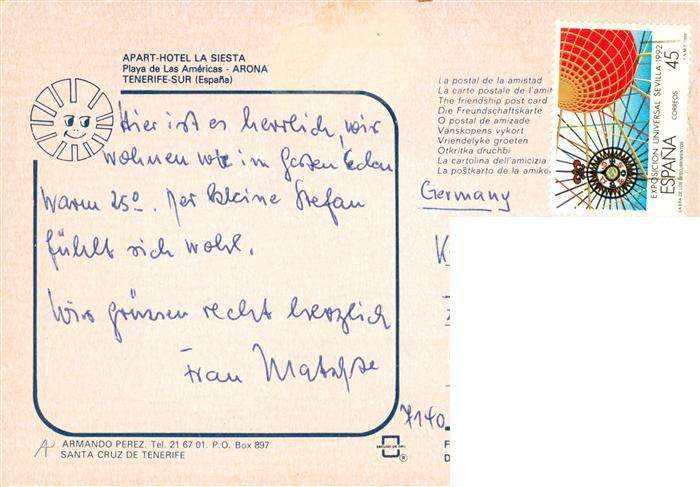 APART-HOTEL LA SIESTA
Playa de Las Américas - ARONA
TENERIFE-SUR (España)
Hier ist es herrlich, wir
wohnen wie im Garten Eden
Warm 25º. Der kleine Stefan
fühlt sich wohl.
Wir grüssen recht herzlich
Frau
ARMANDO PEREZ. Tel. 21 67 01. P.O. Box 897
SANTA CRUZ DE TENERIFE
La postal de la amistad
La carte postale de l'amit
The friendship post card
Die Freundschaftskarte
O postal de amizade
Vänskopens vykort
Vriendelyke groeten
Otkritka druchbi
La cartolina dell'amicizia
La postkarto de la amike
Germany
7140
EXPOSICION UNIVERSAL SEVILLA 1992
ESPAÑA
CORREOS
45
LA ERA DE LOS DESCUBRIMIENTOS